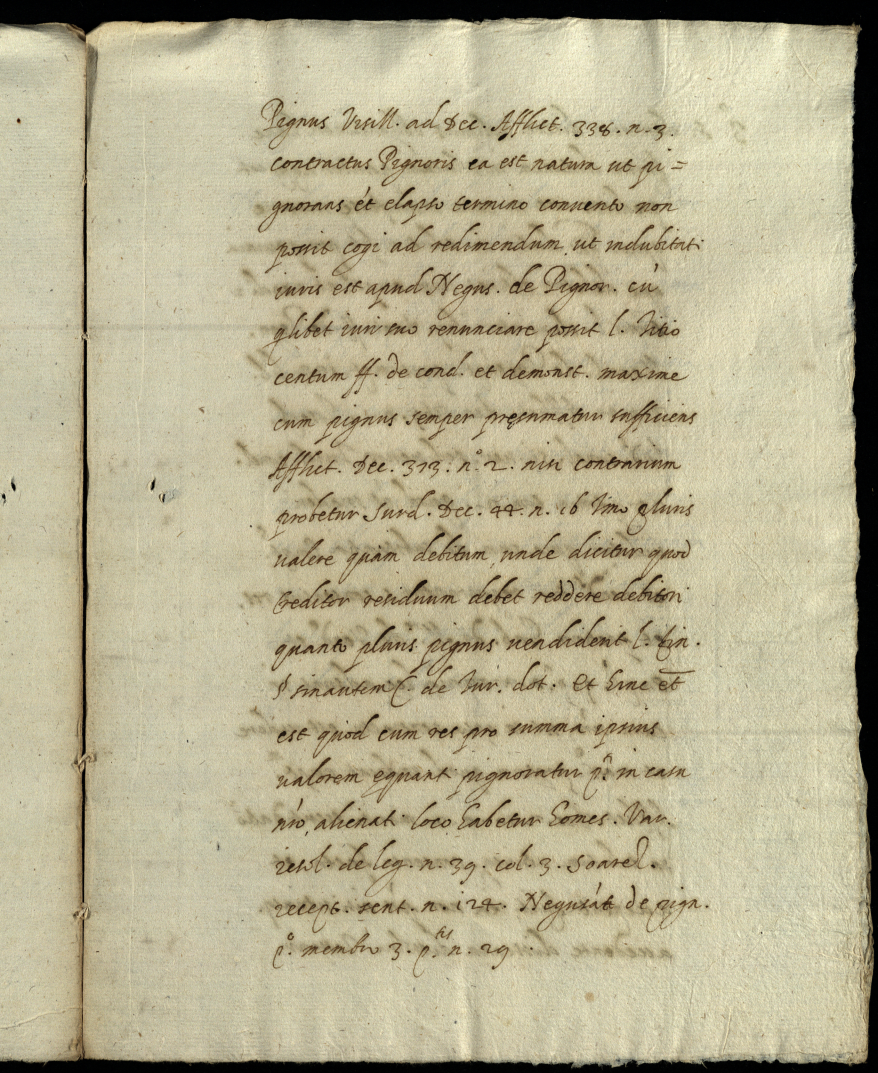 Pignus Visill. ad Dec. Afflict. 338. n. 3.
contractus Pignoris ea est natura ut pi=
gnorans ét elapso termino convento non
possit cogi ad redimendum ut indubitati
iuris est apud Negus. de Pignor. cũ
qlibet iuri suo renunciare possit l. Titio
centum ff. de cond. et demonst. maxime
cum pignus semper pręsumatur sufficiens
Afflict. Dec. 313. n.º 2. nisi contrarium
probetur Surd. Dec. 44. n. 16 Imo pluris
valere quàm debitum, unde dicitur quod
Creditor residuum debet reddere debitori
quanto pluris pignus vendiderit l.
§ sin autem C. de Iur. dot. Et hinc et
est quod cum res pro summa ipsius
valorem ęquant pignoratur in casu
nr̃o, alienati loco habetur Gomes. Var.
resol. de leg. n. 39. col. 3. Soared.
recept. sent. n. 124. Negusãt de pign.
p.º membr 3. p.tis n. 29